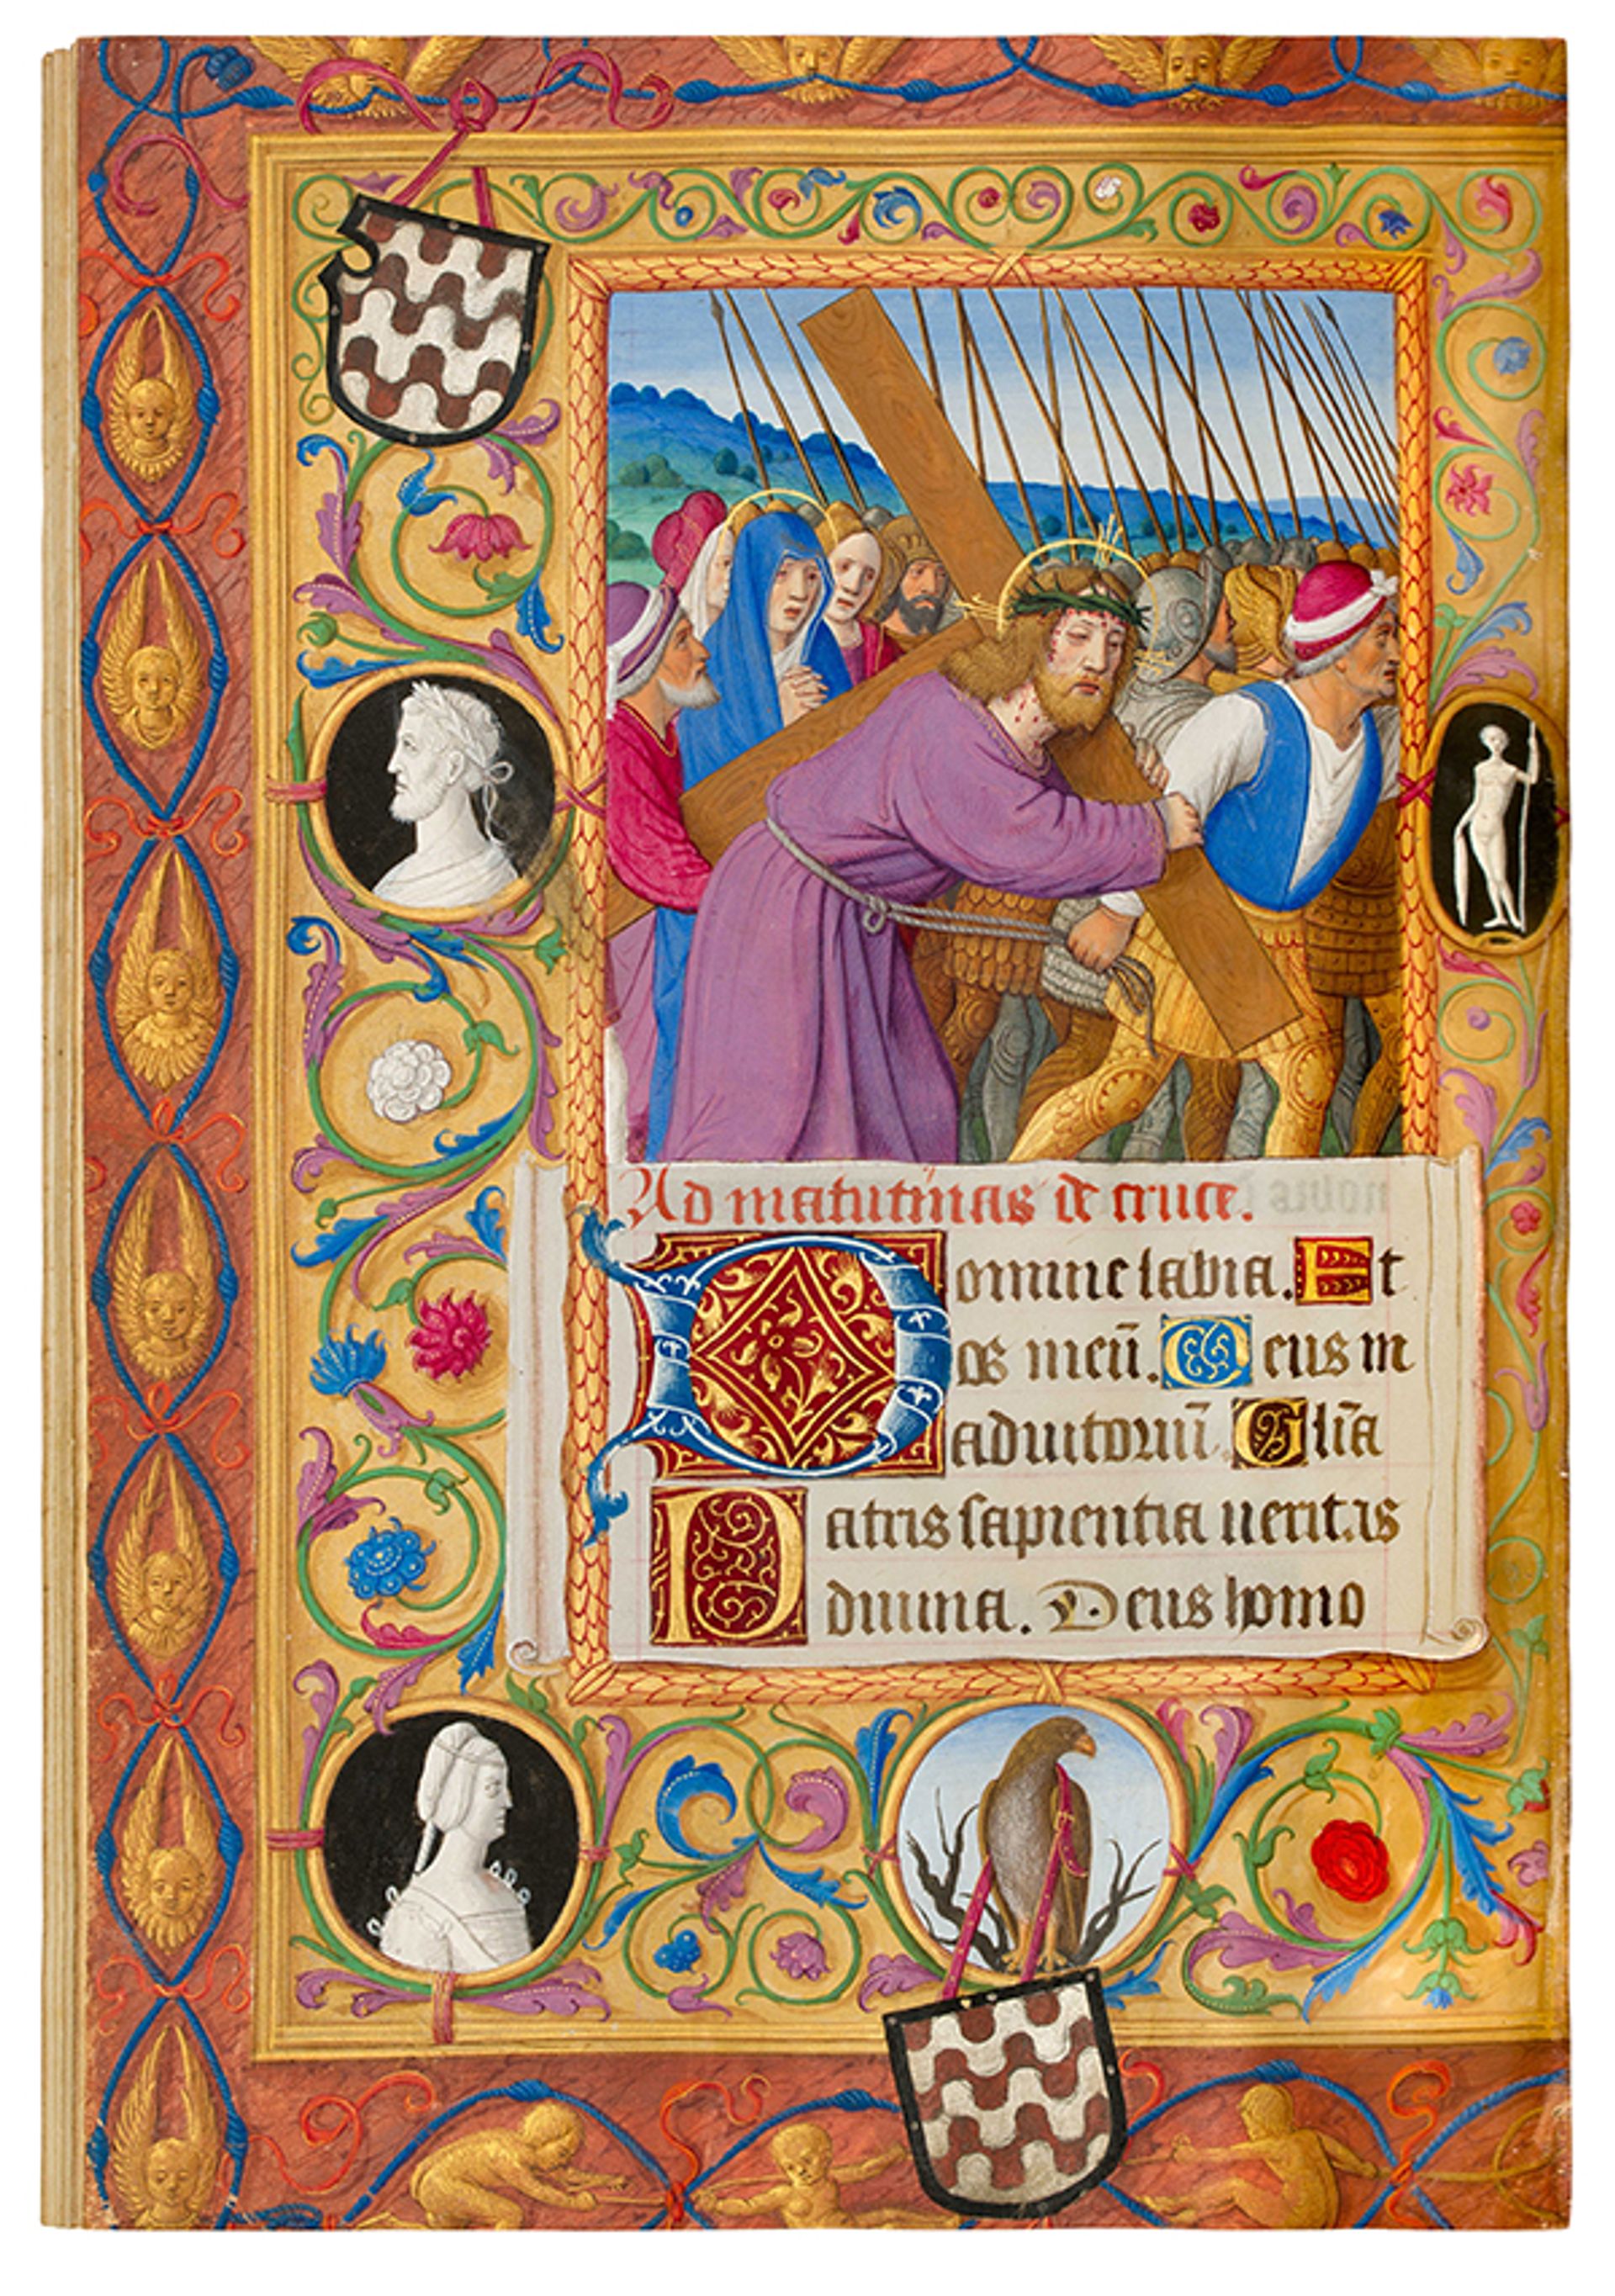 Ad matutinas de cruce.
Domine labia. Et
os meū. Deus in
adiutoriū. Glīa
Patris sapientia ueritas
diuina. Deus homo